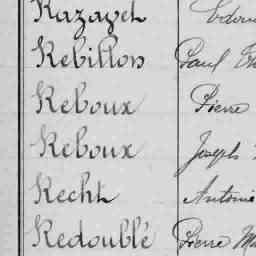 Razayet
Rebillon Paul
Reboux Pierre
Reboux Joseph
Recht Antoine
Redoublé Pierre